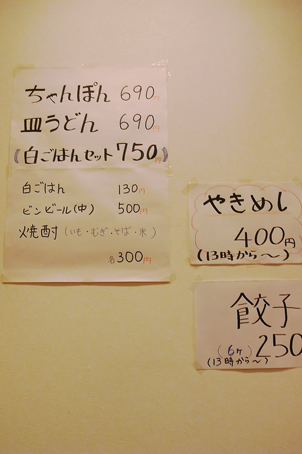 ちゃんぽん 690円
皿うどん 690円
(白ごはんセット750円)
白ごはん 130円
ビンビール(中) 500円
焼酎(いも・むぎ・そば・米)
各300円
やきめし
400円
(13時から〜)
餃子
(6ヶ) 250
(13時から〜)